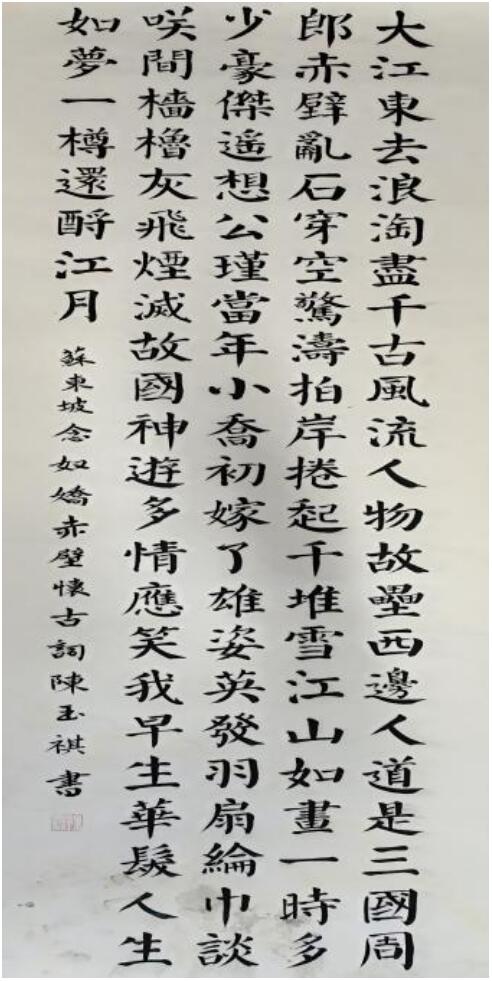 大江東去浪淘盡千古風流人物故壘西邊人道是三國周
郎赤壁亂石穿空驚濤拍岸捲起千堆雪江山如畫一時多
少豪傑遥想公瑾當年小喬初嫁了雄姿英發羽扇綸巾談
咲間檣櫓灰飛煙滅故國神遊多情應笑我早生華髮人生
如夢一樽還酹江月
蘇東坡念奴嬌赤壁懷古詞陳玉祺書